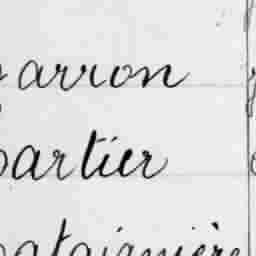 arron
artier
ataignière